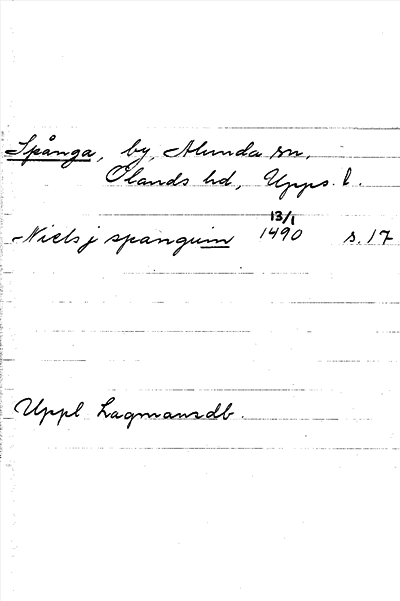 Spånga, by, Alunda sn,
Ölands hd, Upps. l.
Niels j spangum 13/1 1490 s. 17
Uppl Lagmansdb.